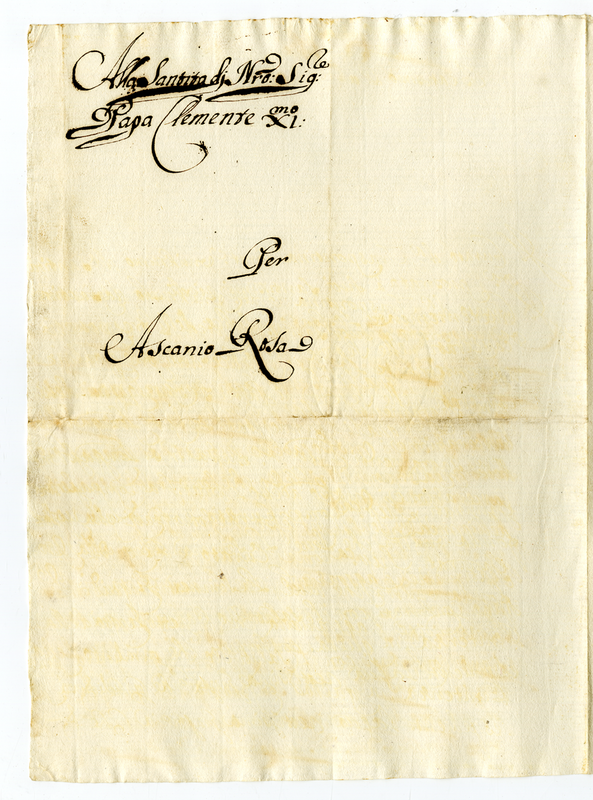 Alla Santità di Nro: Sig:re
Papa Clemente XI:mo
Per
Ascanio Rosa